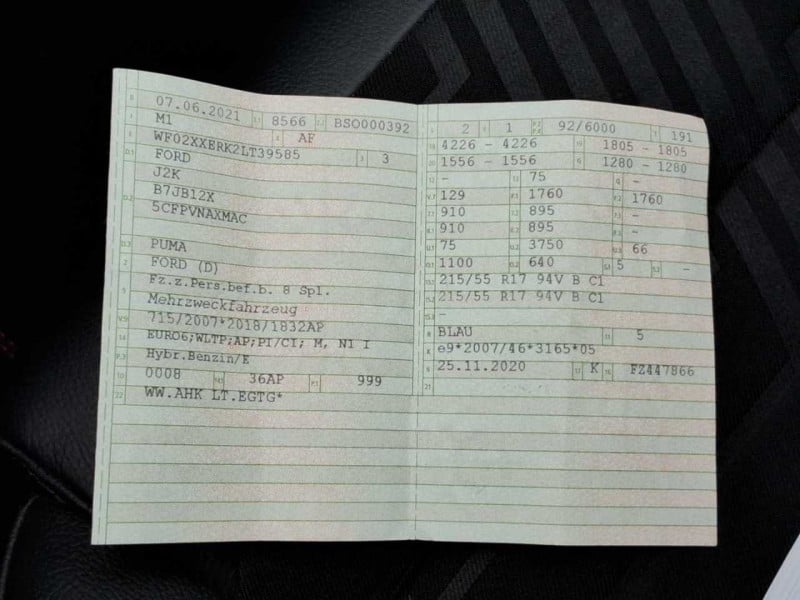 07.06.2021 8566 BSO000392
M1 AF
WF02XXERK2LT39585 3
FORD
J2K
B7JB12X
5CFPVNAXMAC
PUMA
FORD (D)
Fz.z.Pers.bef.b. 8 Spl.
Mehrzweckfahrzeug
715/2007*2018/1832AP
EURO6;WLTP;AP;PI/CI; M, N1 I
Hybr.Benzin/E
0008 36AP 999
WW.AHK LT.EGTG*
2 1 92/6000 191
4226 - 4226 1805 - 1805
1556 - 1556 1280 - 1280
- 75 -
129 1760 1760
910 895 -
910 895 -
75 3750 66
1100 640 5 -
215/55 R17 94V B C1
215/55 R17 94V B C1
-
BLAU 5
e9*2007/46*3165*05
25.11.2020 K FZ447866